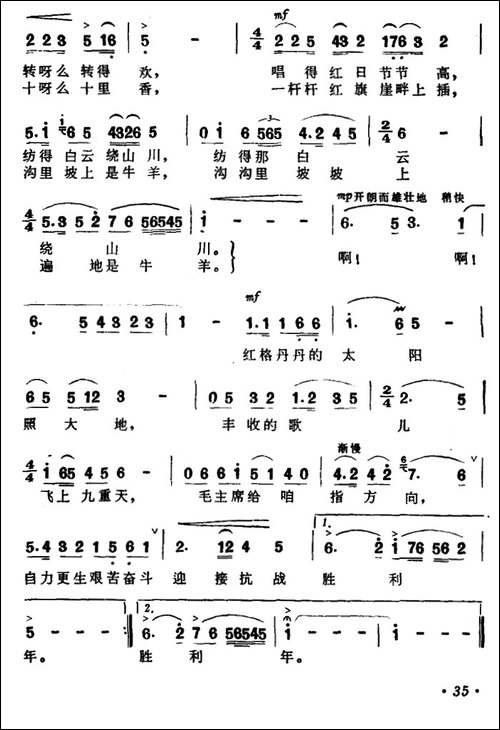 mf
2 2 3 5 1 6 | 5 - | 4/4 2 2 5 4 3 2 1 7 6 3 2
转呀么 转得 欢， 唱 得 红 日 节 节 高，
十呀么 十里 香， 一杆杆 红 旗 崖畔上 插，
5. 1 6 5 4326 5 | 0 1 6 565 4. 2 4 5 | 2/4 6 -
纺得 白云 绕山 川， 纺 得那 白 云
沟里 坡上 是牛 羊， 沟 沟里 坡 坡 上
mp 开朗而雄壮地 稍快
4/4 5. 3 5 2 7 6 56545 | 1 - - - | 6. 5 3. 1
绕 山 川。 啊！ 啊！
遍 地是 牛 羊。
mf
6. 5 4 3 2 3 | 1 - 1. 1 1 6 6 | 1. 6 5 -
红格丹丹的 太 阳
6 5 5 1 2 3 - | 0 5 3 2 1. 2 3 5 | 2/4 2. 5
照 大 地， 丰 收的 歌 儿
渐慢
4/4 1 65 4 5 6 | 0 6 6 1 5 1 4 0 | 4. 2 4 2 7. 6
飞上 九重天， 毛主席给 咱 指 方 向，
1.
5. 4 3 2 1 5 6 1 | 2. 12 4 5 | 6. 2 1 76 56 2
自力更生艰苦奋斗 迎 接抗 战 胜 利
2.
5 - - - :‖ 6. 2 7 6 56545 | 1 - - - | 1 - - - ‖
年。 胜 利 年。
· 35 ·